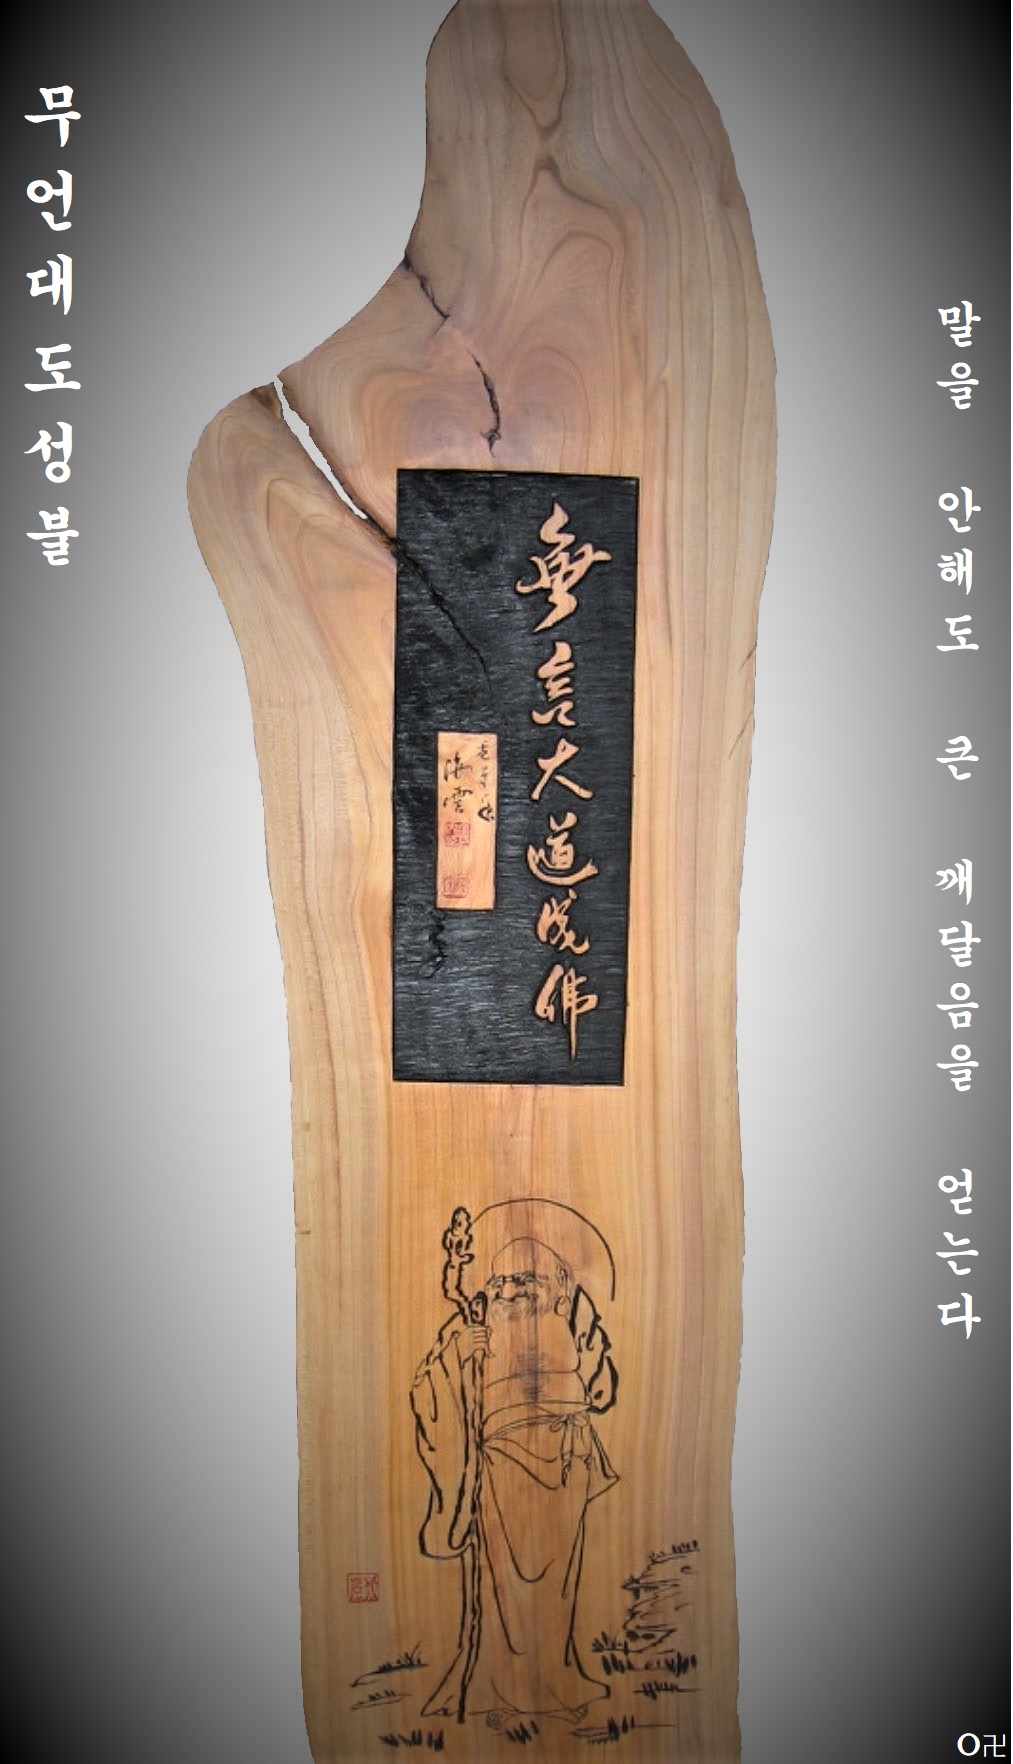 무언대도성불
말을 안해도 큰 깨달음을 얻는다
無言大道成佛
海雲
O卍